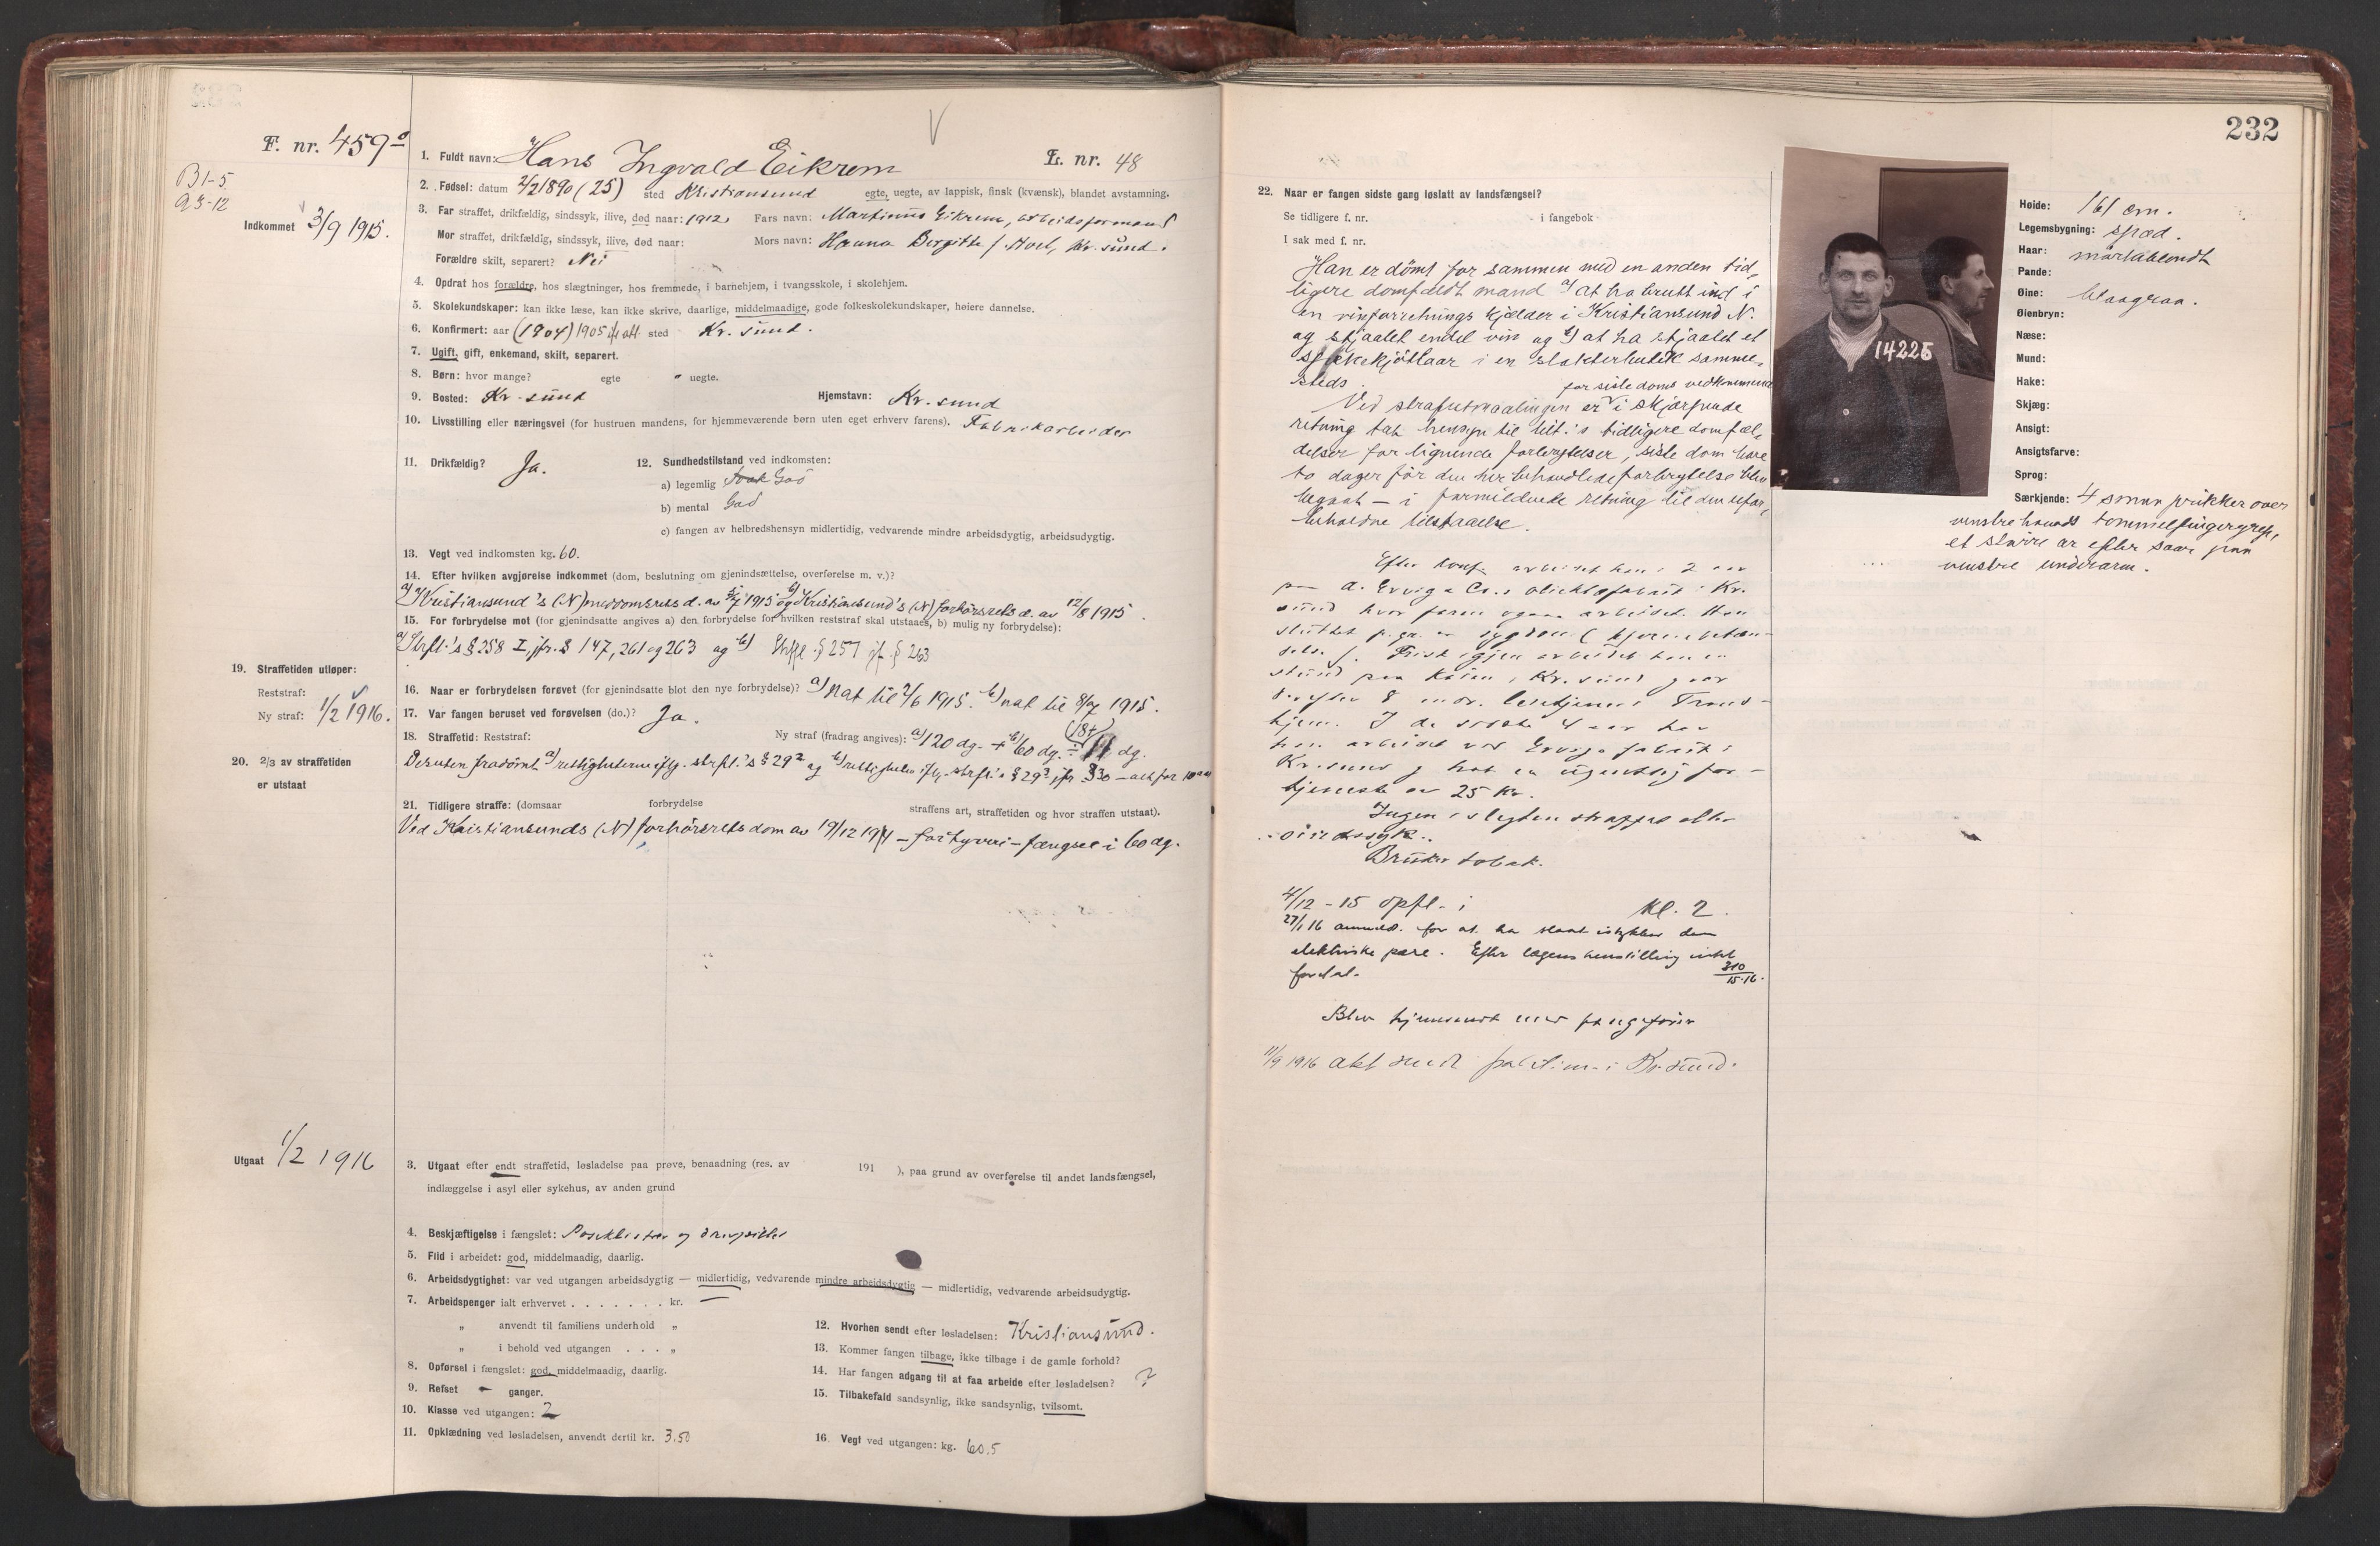 F. nr. 459
B1-5
a3-12
Indkommet 3/9 1915.
1. Fuldt navn: Hans Ingvald Eikrem L. nr. 48
2. Fødsel: datum 2/2 1890 (25) sted Kristiansund egte, uegte, av lappisk, finsk (kvænsk), blandet avstamning.
3. Far straffet, drikfældig, sindssyk, ilive, død naar: 1912. Fars navn: Martinus Eikrem, arbeidsformand
Mor straffet, drikfældig, sindssyk, ilive, død naar: Mors navn: Hanna Birgitte f. Hoel, Kr. sund.
Forældre skilt, separert? Nei
4. Opdrat hos forældre, hos slægtninger, hos fremmede, i barnehjem, i tvangsskole, i skolehjem.
5. Skolekundskaper: kan ikke læse, kan ikke skrive, daarlige, middelmaadige, gode folkeskolekundskaper, høiere dannelse.
6. Konfirmert: aar (1904) 1905 att. sted Kr. sund.
7. Ugift, gift, enkemand, skilt, separert.
8. Børn: hvor mange? egte " uegte.
9. Bosted: Kr. sund Hjemstavn: Kr. sund
10. Livsstilling eller næringsvei (for hustruen mandens, for hjemmeværende børn uten eget erhverv farens). Fabrikarbeider
11. Drikfældig? Ja. 12. Sundhedstilstand ved indkomsten:
a) legemlig God
b) mental God
c) fangen av helbredshensyn midlertidig, vedvarende mindre arbeidsdygtig, arbeidsudygtig.
13. Vegt ved indkomsten kg. 60.
14. Efter hvilken avgjørelse indkommet (dom, beslutning om gjenindsættelse, overførelse m. v.)?
a) Kristiansund's (N) meddomsrets d. av 5/7 1915 og b) Kristiansund's (N) forhørsrets d. av 12/8 1915.
15. For forbrydelse mot (for gjenindsatte angives a) den forbrydelse for hvilken reststraf skal utstaaes, b) mulig ny forbrydelse):
a) Strfl.'s § 258 I, jfr. § 147, 261 og 263 og b) Strfl. § 257 jf. § 263
19. Straffetiden utløper:
Reststraf:
Ny straf: 1/2 1916.
16. Naar er forbrydelsen forøvet (for gjenindsatte blot den nye forbrydelse)? a) nat til 2/6 1915. b) nat til 8/7 1915.
17. Var fangen beruset ved forøvelsen (do.)? Ja.
18. Straffetid: Reststraf: Ny straf (fradrag angives): a) 120 dg. + b) 60 dg. ÷ 11 dg.
20. 2/3 av straffetiden
er utstaat
Desuten fradømt a) rettigheterne iflg. strfl.'s § 29² og b) rettigheder iflg. strfl.'s § 29² jfr. § 30 – alt for 10 aar
21. Tidligere straffe: (domsaar forbrydelse straffens art, straffetiden og hvor straffen utstaat).
Ved Kristiansunds (N) forhørsrets dom av 19/12 1914 – for tyveri – fængsel i 60 dg.
Utgaat 1/2 1916
3. Utgaat efter endt straffetid, løsladelse paa prøve, benaadning (res. av 191 ), paa grund av overførelse til andet landsfængsel,
indlæggelse i asyl eller sykehus, av anden grund
4. Beskjæftigelse i fængslet: Poseklistrer og
5. Flid i arbeidet: god, middelmaadig, daarlig.
6. Arbeidsdygtighet: var ved utgangen arbeidsdygtig — midlertidig, vedvarende mindre arbeidsdygtig — midlertidig, vedvarende arbeidsudygtig.
7. Arbeidspenger ialt erhvervet . . . . . . . kr. —
" anvendt til familiens underhold "
" i behold ved utgangen . . . "
8. Opførsel i fængslet: god, middelmaadig, daarlig.
9. Refset - ganger.
10. Klasse ved utgangen: 2
11. Opklædning ved løsladelsen, anvendt dertil kr. 3.50
12. Hvorhen sendt efter løsladelsen: Kristiansund.
13. Kommer fangen tilbage, ikke tilbage i de gamle forhold?
14. Har fangen adgang til at faa arbeide efter løsladelsen? ?
15. Tilbakefald sandsynlig, ikke sandsynlig, tvilsomt.
16. Vegt ved utgangen: kg. 60.5
232
22. Naar er fangen sidste gang løslatt av landsfængsel?
Se tidligere f. nr. i fangebok
I sak med f. nr.
Han er dømt for sammen med en anden tid-
ligere domfældt mand a) at ha brutt ind i
en vinforretnings kjælder i Kristiansund N.
og stjaalet endel vin og b) at ha stjaalet et
spekekjøtlaar i en slakterbutik samme-
steds.
for siste doms vedkommende
Ved strafutmaalingen er i skjærpende
retning tat hensyn til tilt.'s tidligere domfæl-
delser for lignende forbrytelser, siste dom bare
to dager før den her behandlede forbrytelse blev
begaat – i formildende retning til den ufor-
beholdne tilstaaelse.
Efter konf. arbeidet han i 2 aar
paa
sund hvor faren ogsaa arbeidet. Han
sluttet p. gr. av sygdom
Frisk igjen arbeidet han en
stund paa Kaien i Kr. sund
8 mdr. Trond-
hjem. I de sidste 4 aar har
han arbeidet ved fabrik i
Kr. sund og hat en ugentlig for-
tjeneste av 25 Kr.
Ingen i slegten straffet eller
sindssyk.
Bruker tobak.
4/12 - 15 opfl. i Kl. 2.
27/1 16 anmeld. for at ha slaat istykker den
elektriske pære. Efter lægens henstilling intet
foretat. 310/15-16.
Blev hjemsendt med fangefører
11/9 1916 akt sendt politim. i Kr. sund.
14225
Høide: 161 cm.
Legemsbygning: spæd.
Haar: mørkblondt
Pande:
Øine: blaagraa.
Øienbryn:
Næse:
Mund:
Hake:
Skjæg:
Ansigt:
Ansigtsfarve:
Sprog:
Særkjende: 4 smaa prikker over
venstre haands tommelfingergrep,
et større ar efter saar paa
venstre underarm.